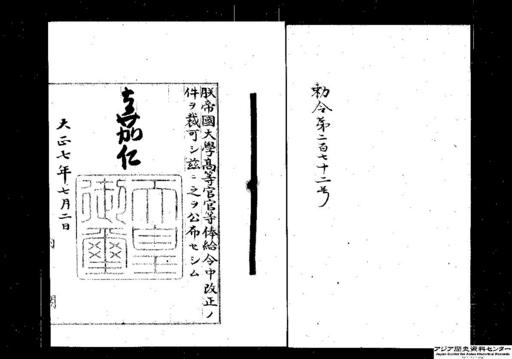 勅令第二百七十二号
朕帝國大學高等官官等俸給令中改正ノ
件ヲ裁可シ茲ニ之ヲ公布セシム
嘉仁
天皇
御璽
大正七年七月二日
内
アジア歴史資料センター
Japan Center for Asian Historical Records